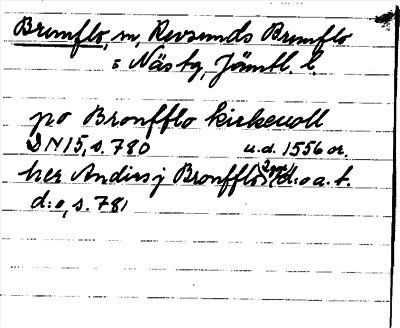 Brunflo, sn, Revsunds Brunflo
o Näs tg, Jämtl. l.
po Bronfflo kirkewoll
DN 15, s. 780 u.d. 1556 or.
her Anders j Bronfflo (d:o a. b.
d:o, s. 781